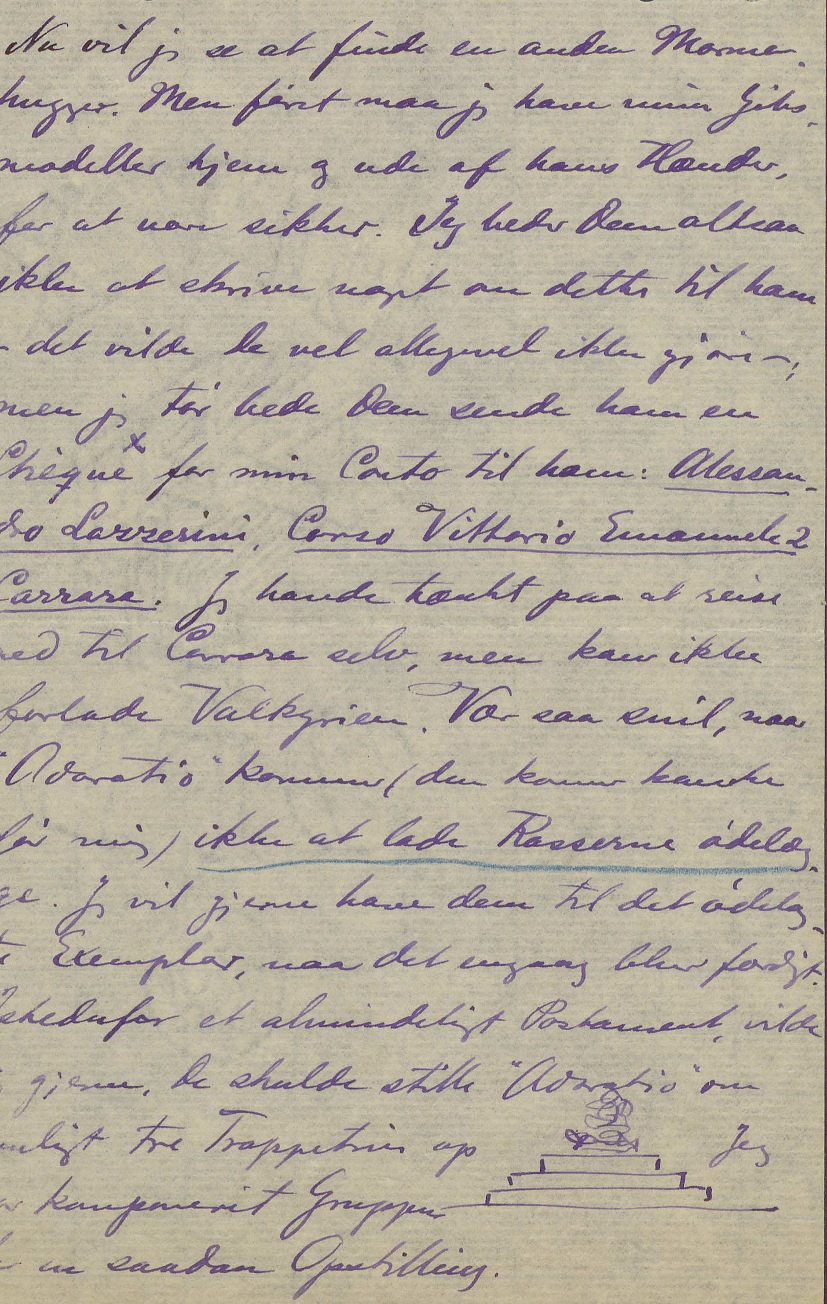 Nu vil jeg se at finde en anden Marmor-
hugger. Men først maa jeg have mine Gibs-
modeller hjem og ude af hans Hænder,
for at være sikker. Jeg beder Dem altsaa
ikke at skrive noget om dette til ham
- det vilde De vel alligevel ikke gjøre -;
men jeg tør bede Dem sende ham en
Chèque x for min Conto til ham: Alessan-
dro Lazzerini, Corso Vittorio Emanuele 2
Carrara. Jeg havde tænkt paa at reise
ned til Carrara selv, men kan ikke
forlade Valkyrien. Vær saa snil, naar
"Adoratio" kommer (den kommer kanske
før mig) ikke at lade Kasserne ødelæg-
ge. Jeg vil gjerne have dem til det ødelag-
te Exemplar, naar det engang bliver færdigt.
Istedenfor et almindeligt Postament, vilde
jeg gjerne, De skulde stille "Adoratio" om
muligt tre Trappetrin op Jeg
har komponerit Gruppen
for en saadan Opstilling.